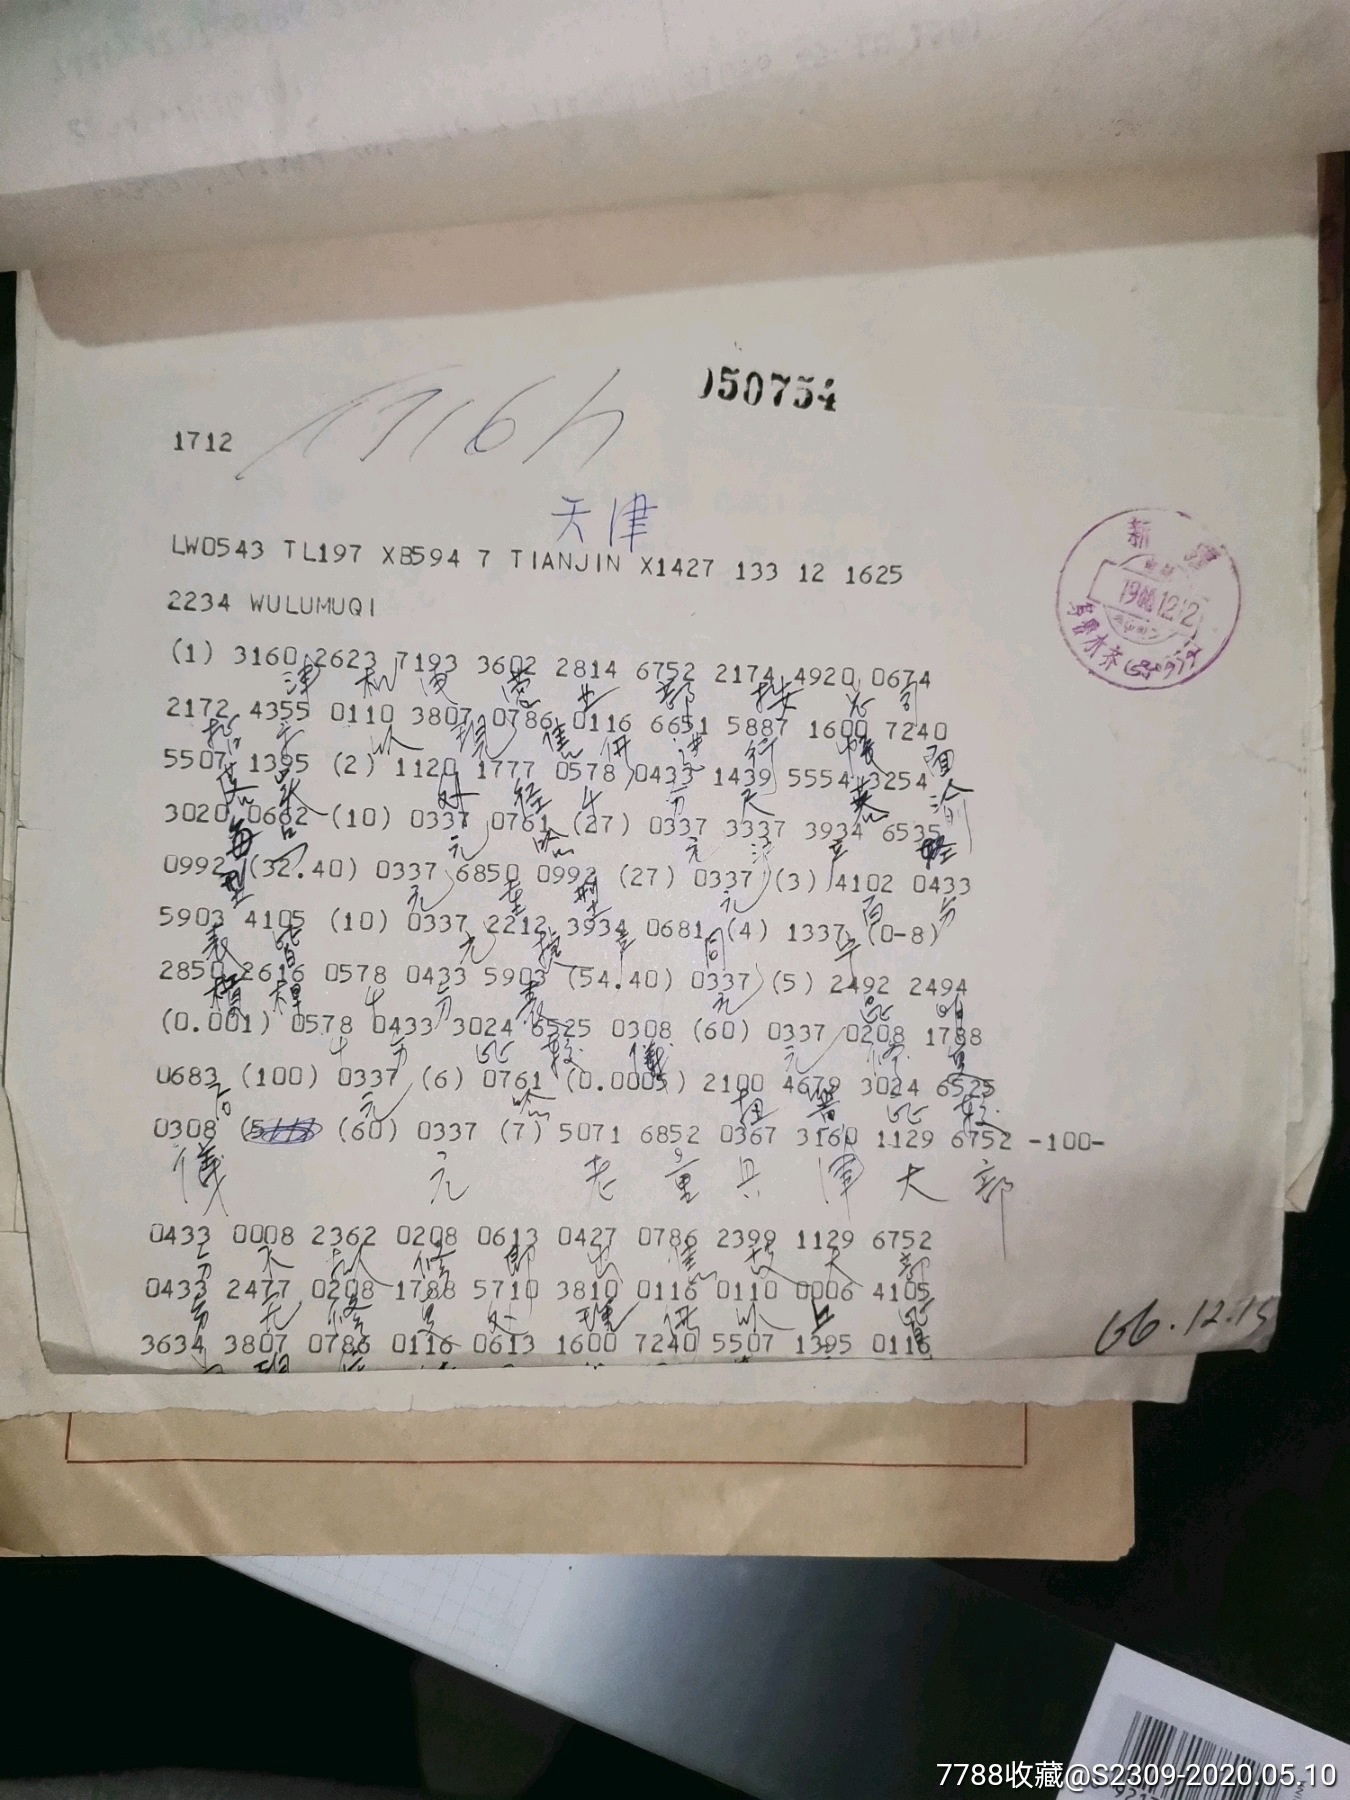 050754
1712 1716
天津
LW0543 TL197 XB594 7 TIANJIN X1427 133 12 1625
2234 WULUMUQI
新疆
1966.12.12
乌鲁木齐
(1) 3160 2623 7193 3602 2814 6752 2174 4920 0674
津 机 营 业 部 按 公 司
2172 4355 0110 3807 0786 0116 6651 5887 1600 7240
以 现 售 供 进 行
5507 1395 (2) 1120 1777 0578 0433 1439 5554 3254
外 径 千 分 天 英 渝
3020 0662 (10) 0337 0761 (27) 0337 3337 3934 6535
每 台 元 哈 元 轻
0992 (32.40) 0337 6850 0992 (27) 0337 (3) 4102 0433
型 元 重 型 元 百 分
5903 4105 (10) 0337 2212 3934 0681 (4) 1337 (0-8)
表 皆 元 同
2850 2616 0578 0433 5903 (54.40) 0337 (5) 2492 2494
横 桿 千 分 表 元
(0.001) 0578 0433 3024 6525 0308 (60) 0337 0208 1788
千 分 比 较 儀 元 修 复
0683 (100) 0337 (6) 0761 (0.0005) 2100 4679 3024 6525
后 元 哈 扭 簧 比 较
0308 (60) 0337 (7) 5071 6852 0367 3160 1129 6752 -100-
儀 元 老 量 具 津 大 部
0433 0008 2362 0208 0613 0427 0786 2399 1129 6752
分 不 修 即 出 售 故 大 部
0433 2477 0208 1788 5710 3810 0116 0110 0006 4105
分 无 修 复 处 理 供 以 上 皆
3634 3807 0786 0116 0613 1600 7240 5507 1395 0116
66.12.15
7788收藏@S2309-2020.05.10